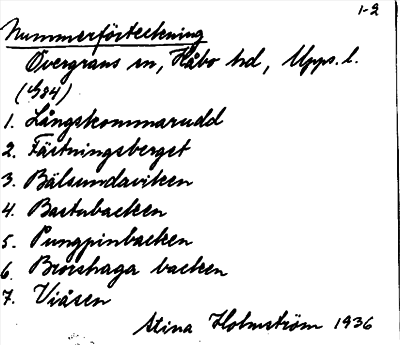 1-2
Nummerförteckning
Övergrans sn, Håbo hd, Upps. l.
1. Långskommarudd
2. Fästningsberget
3. Bälsundaviken
4. Bastubacken
5. Pungpinbacken
6. Brorshaga backen
7. Viåsen
Stina Holmström 1936